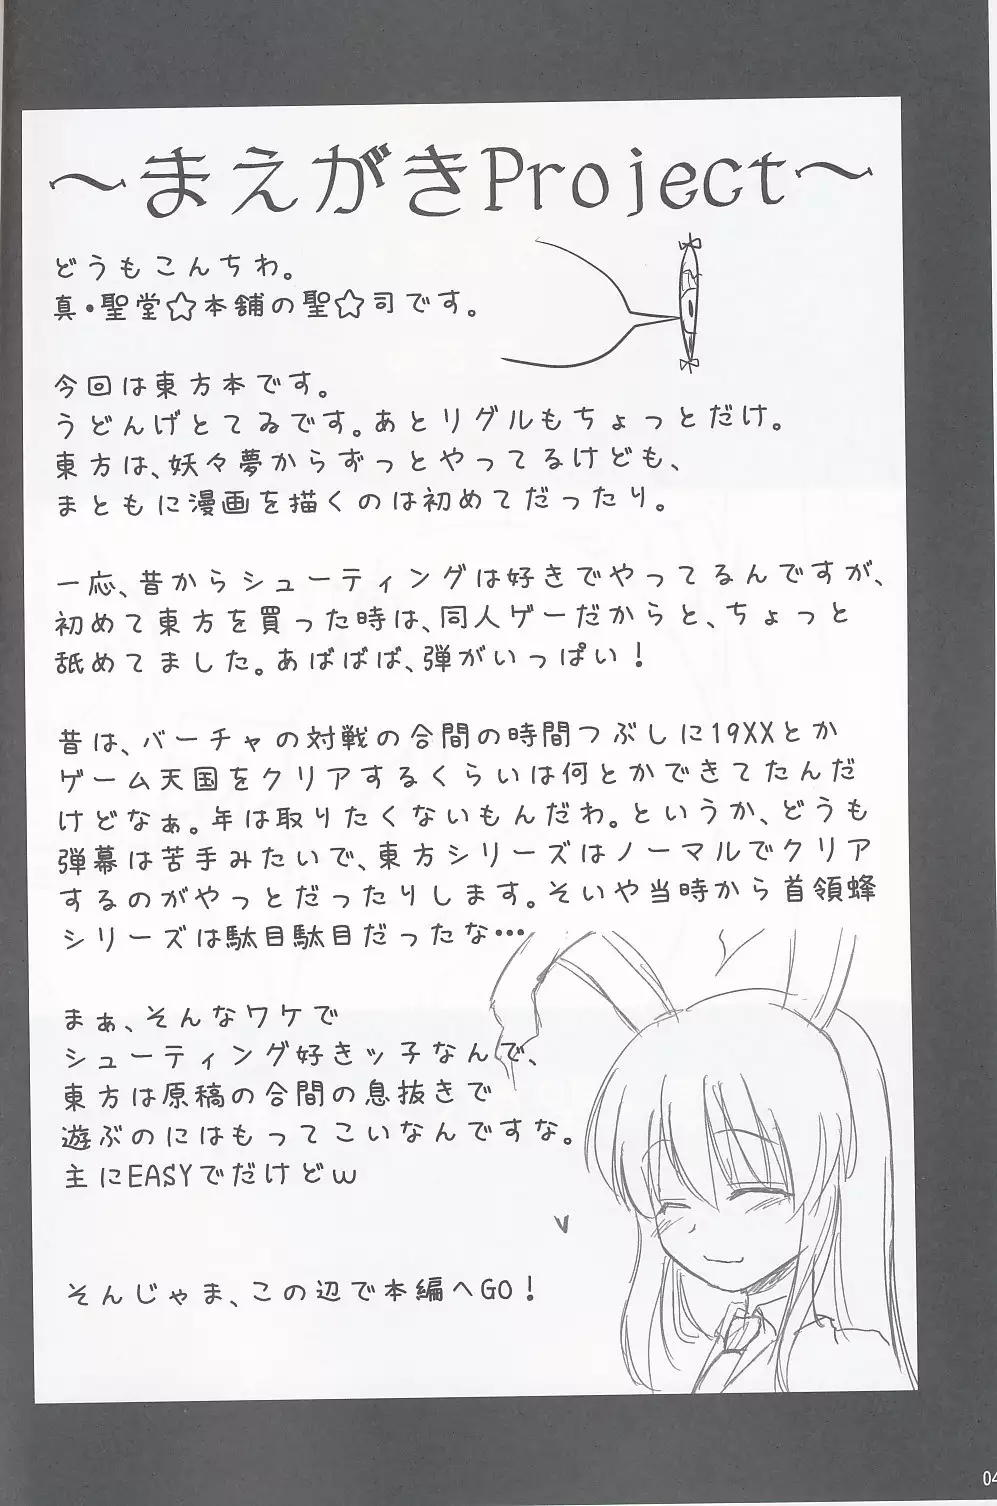 ～まえがきProject～
どうもこんちわ。
真・聖堂☆本舗の聖☆司です。
今回は東方本です。
うどんげとてゐです。あとリグルもちょっとだけ。
東方は、妖々夢からずっとやってるけども、
まともに漫画を描くのは初めてだったり。
一応、昔からシューティングは好きでやってるんですが、
初めて東方を買った時は、同人ゲーだからと、ちょっと
舐めてました。あばばば、弾がいっぱい！
昔は、バーチャの対戦の合間の時間つぶしに19XXとか
ゲーム天国をクリアするくらいは何とかできてたんだ
けどなぁ。年は取りたくないもんだわ。というか、どうも
弾幕は苦手みたいで、東方シリーズはノーマルでクリア
するのがやっとだったりします。そいや当時から首領蜂
シリーズは駄目駄目だったな…
まぁ、そんなワケで
シューティング好きッ子なんで、
東方は原稿の合間の息抜きで
遊ぶのにはもってこいなんですな。
主にEASYでだけどw
そんじゃま、この辺で本編へGO！
04